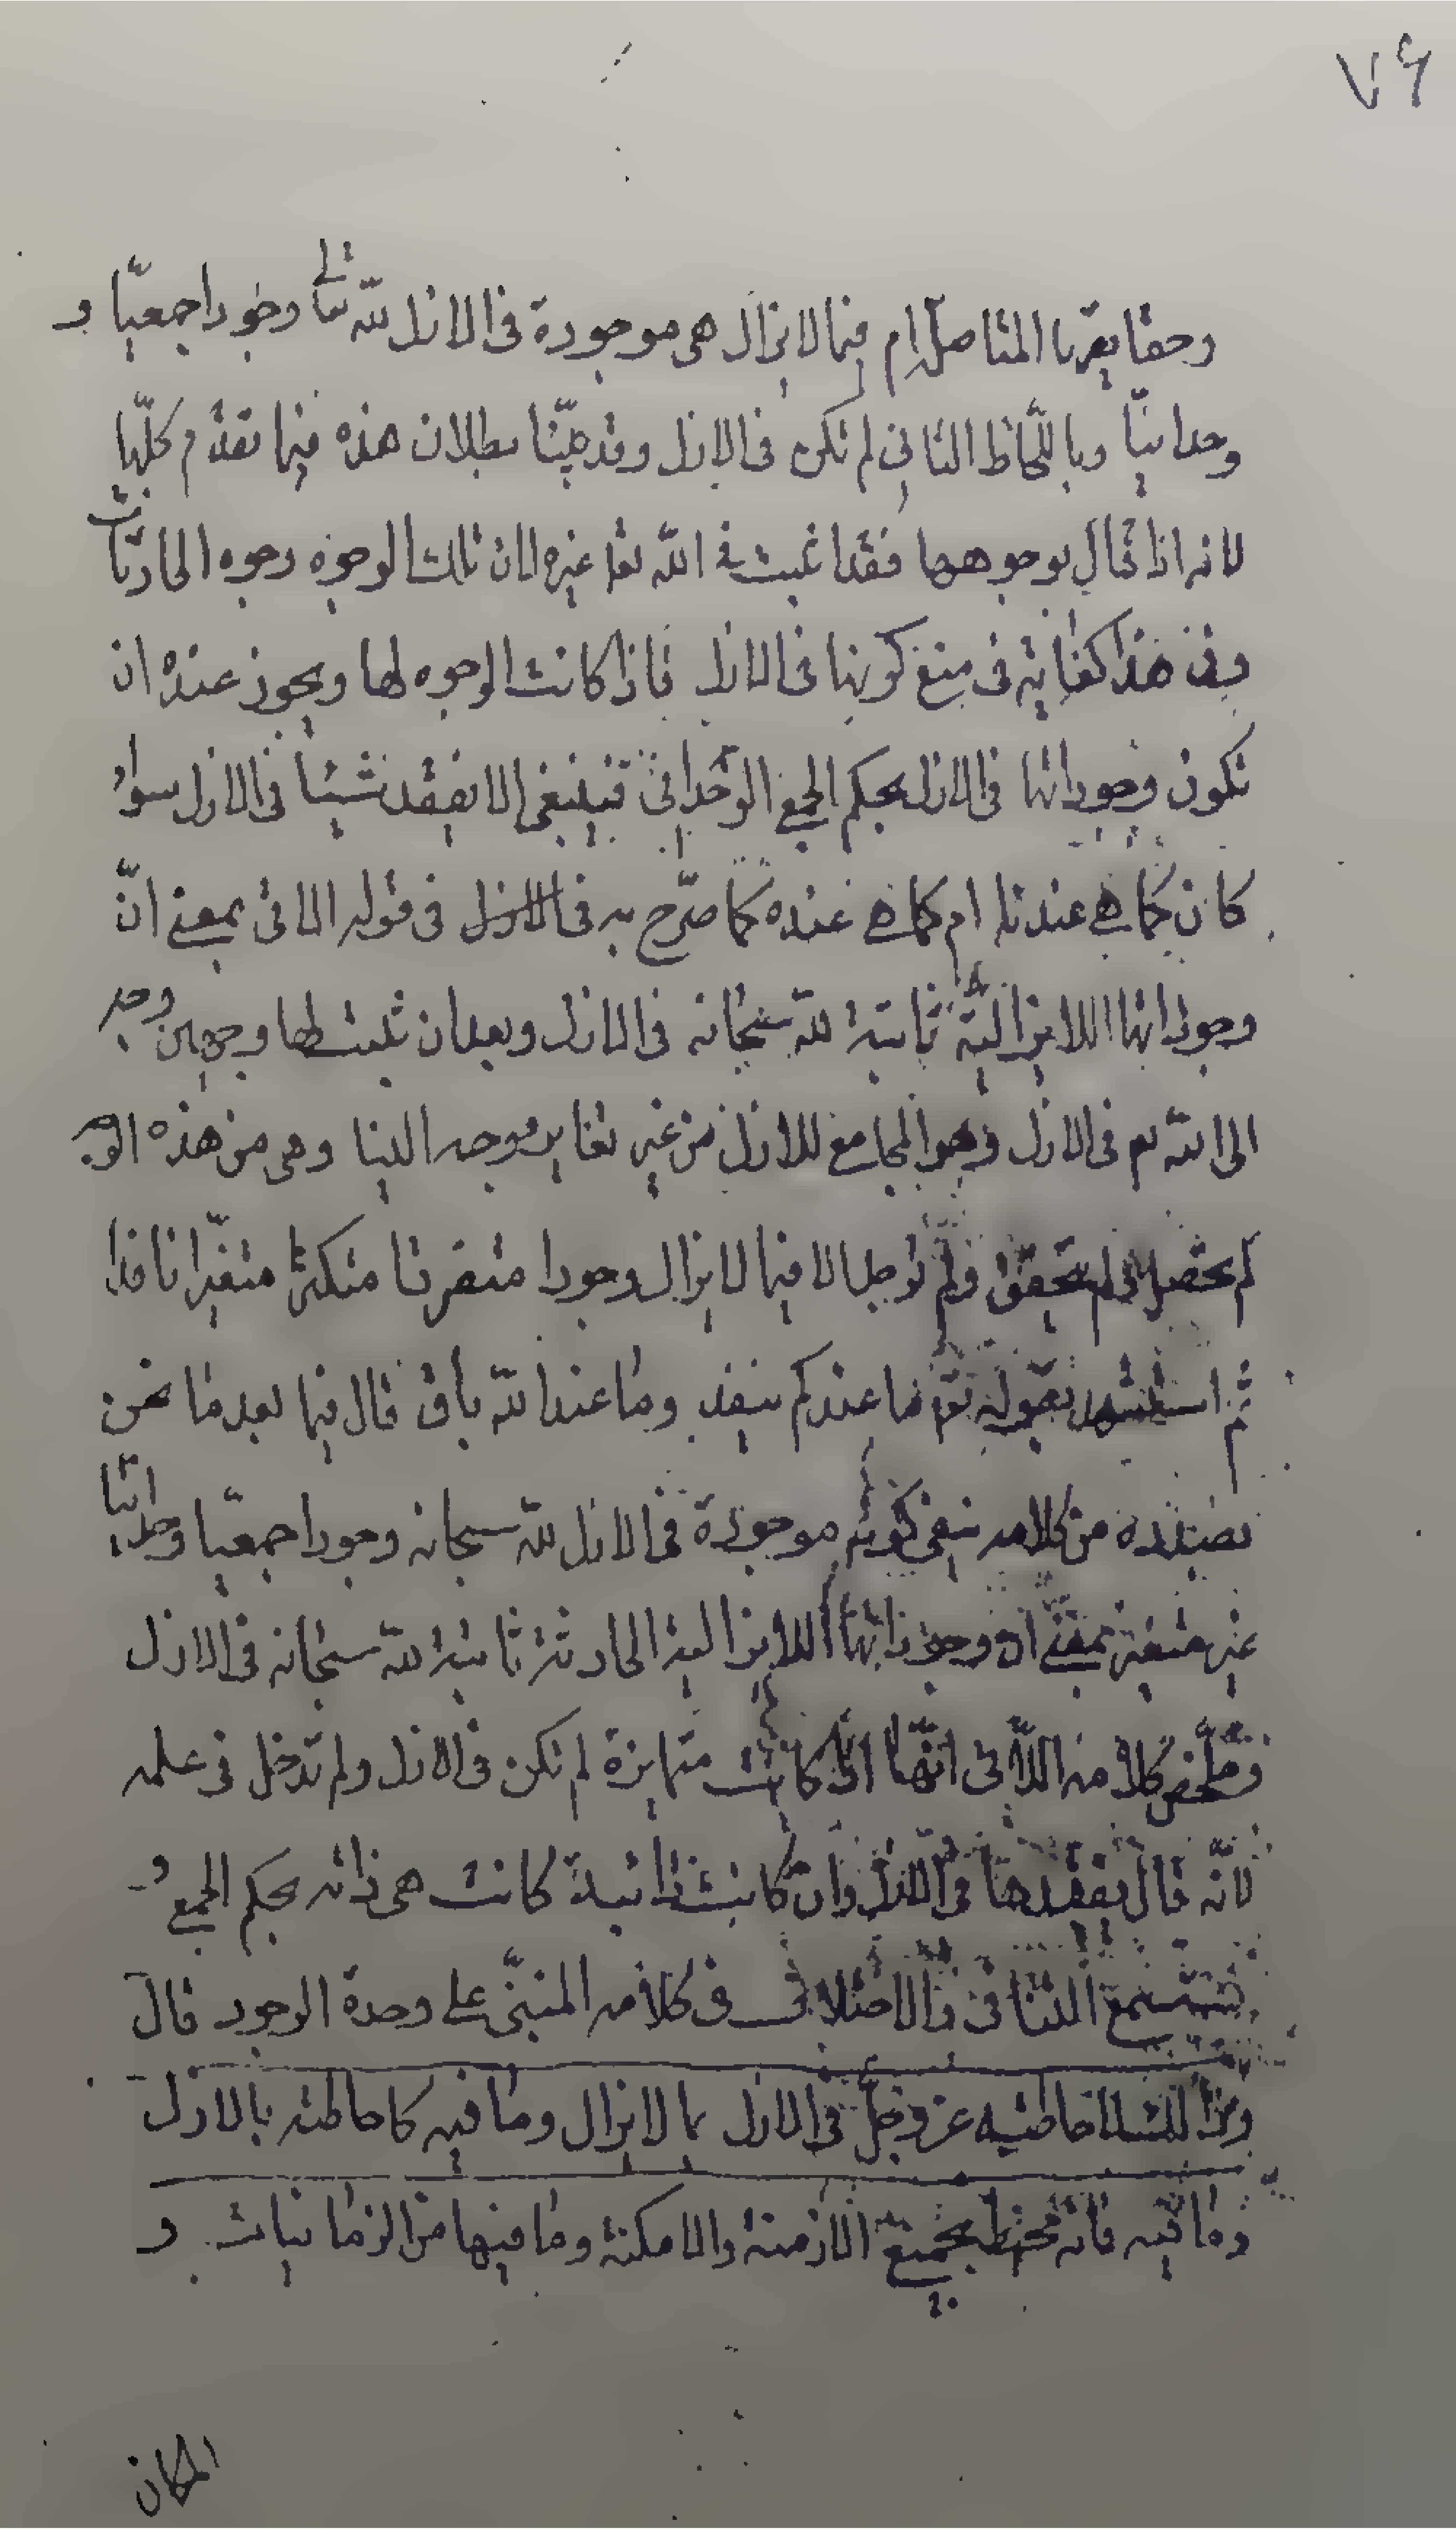 ٧٤
وحقايقها المتاصلة ام فيما لا يزال هى موجودة فى الازل لله تعالى وجودا جمعيّا و
وحدانيّا وباللّحاظ الثانى لم تكن فى الازل وقد بيّنّا بطلان هذه فيما تقدّم كلّها
لانه اذا قال بوجوهها فقد اثبت فى الله تعا غيره لان تلك الوجوه وجوه الحادثات
وفى هذا كفاية فى منع كونها فى الازل فاذا كانت الوجوه لها ويجوز عنده ان
تكون وجوداتها فى الازل بحكم الجمع الوحدانى فينبغى الا يفقد شيئا فى الازل سواء
كان كما هى عندنا ام كما هى عنده كما صرّح به فى الازل فى قوله الاتى بمعنى انّ
وجوداتها اللايزاليّة ثابتة لله سبحانه فى الازل وبعد ان ثبت لها وجهين وجه
الى الله تع فى الازل وهو الجامع للازل من غير تغاير ووجه الينا وهى من هذه الوجه
لم يحصل ولم يتحقق ولم توجد الا فيما لا يزال وجودا متفرقا متكثرا متغيرا نافدا
ثم استشهد بقوله تع ما عندكم ينفد وما عند الله باق قال فيما بعد ما نحن
بصدده من كلامه ينفى كونه موجودة فى الازل لله سبحانه وجودا جمعيّا وحدانيّا
غير متغير بمعنى ان وجوداتها اللايزالية الحادثة ثابتة لله سبحانه فى الازل
وملخص كلامه اللّاتى انّها اذا كانت متمايزة لم تكن فى الازل ولم تدخل فى علمه
لانّه قال يفقدها فى الازل وان كانت ذاتية كانت هى ذاته بحكم الجمع و
ستسمع التنافى والاختلاف فى كلامه المبنىّ على وحدة الوجود قال
ومن الثلا احاطته عز وجل فى الازل بما لا يزال وما فيه كاحاطته بالازل
وما فيه فانه محيط بجميع الازمنة والامكنة وما فيها من الزمانيات و
المكان